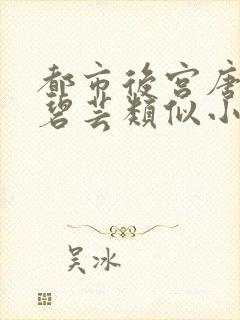 都市後宮唐
碧芸類似小
吴冰